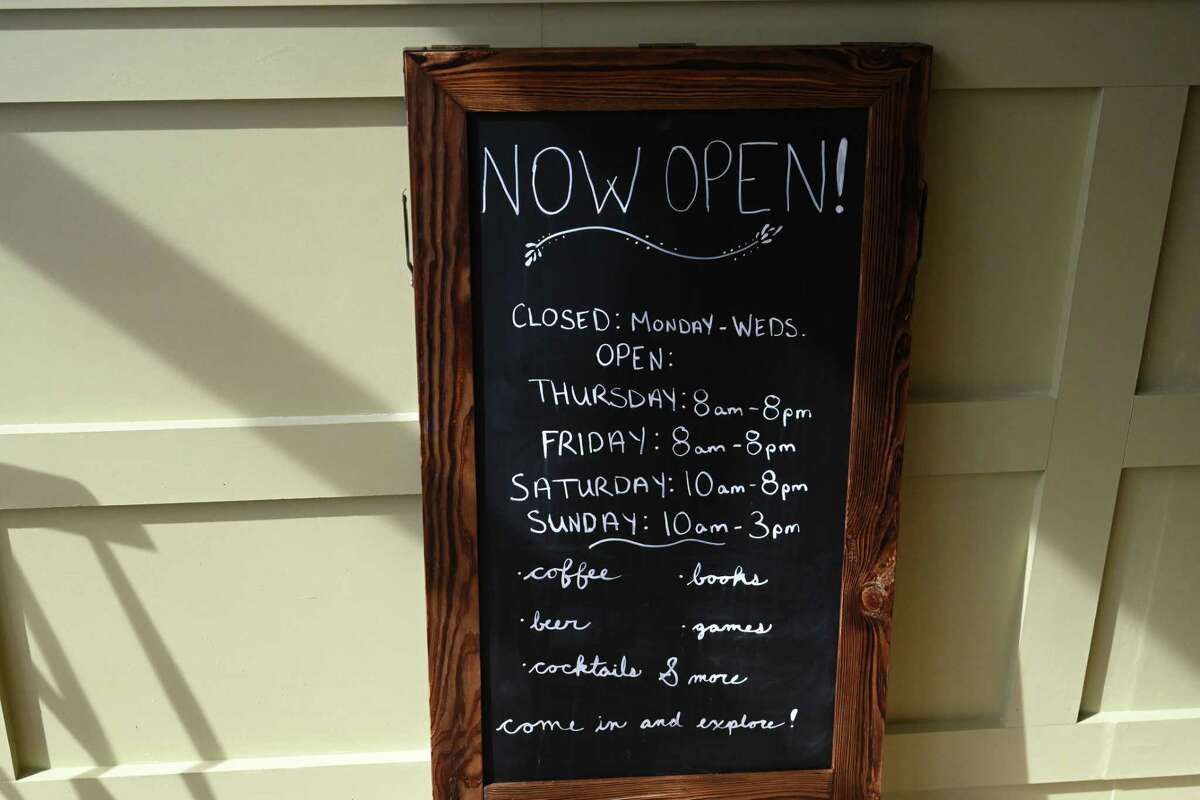 NOW OPEN!
CLOSED: MONDAY - WEDS.
OPEN:
THURSDAY: 8am - 8pm
FRIDAY: 8am - 8pm
SATURDAY: 10am - 8pm
SUNDAY: 10am - 3pm
· coffee · books
· beer · games
· cocktails & more
come in and explore!